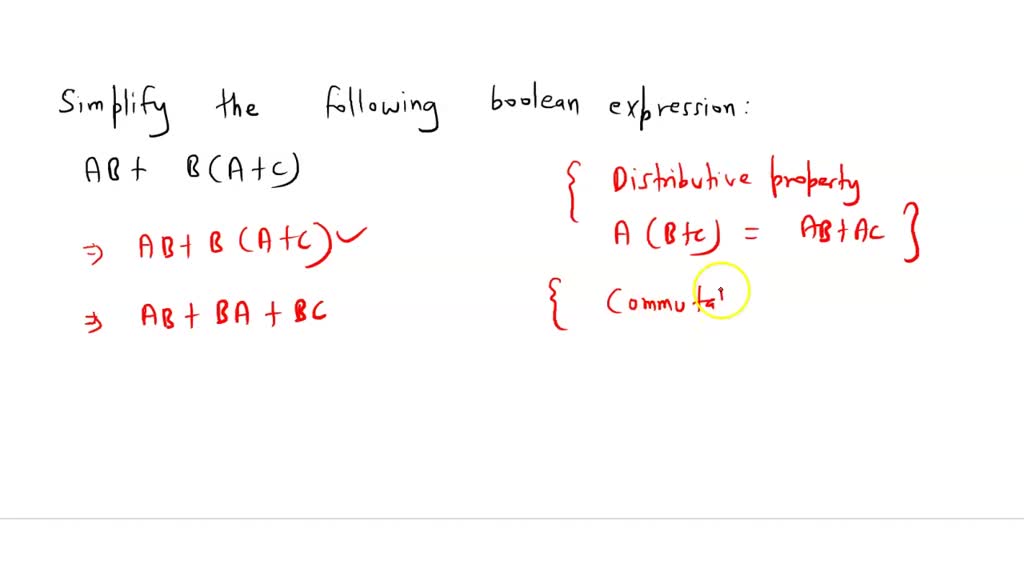 Simplify the following boolean expression:
AB+ B(A+C)
⇒ AB+ B (A+C) ✓
⇒ AB + BA + BC
{ Distributive property
A (B+C) = AB+AC }
{ Commutai